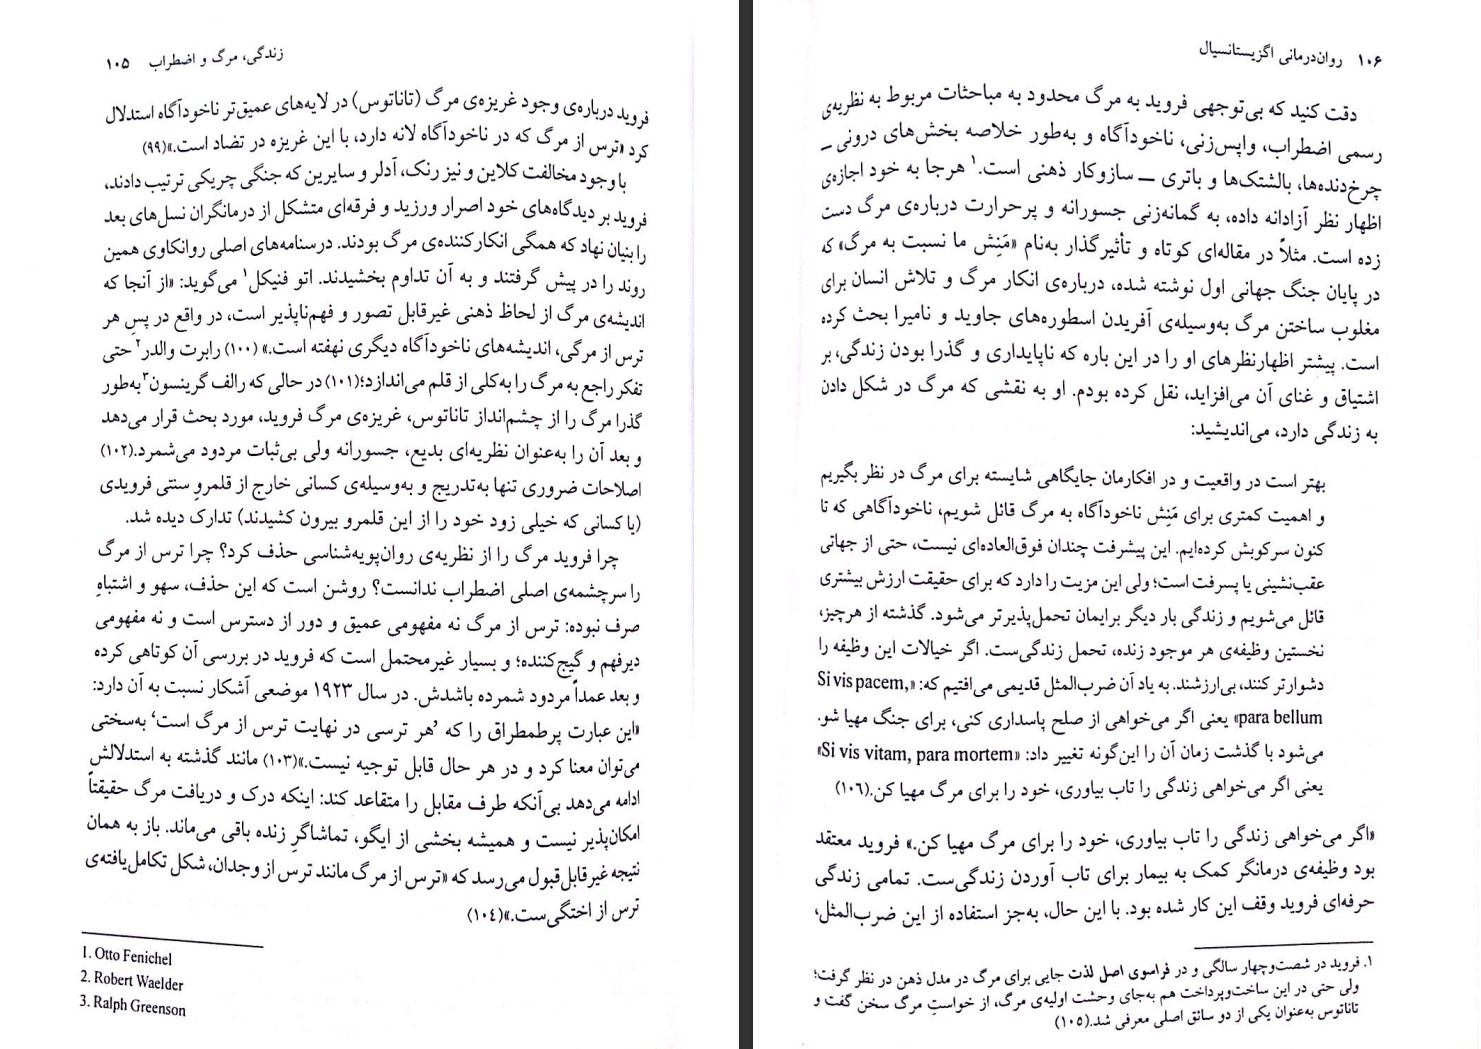 زندگی، مرگ و اضطراب ۱۰۵
فروید درباره‌ی وجود غریزه‌ی مرگ (تاناتوس) در لایه‌های عمیق‌تر ناخودآگاه استدلال
کرد «ترس از مرگ که در ناخودآگاه لانه دارد، با این غریزه در تضاد است.»(۹۹)
با وجود مخالفت کلاین و نیز رنک، آدلر و سایرین که جنگی چریکی ترتیب دادند،
فروید بر دیدگاه‌های خود اصرار ورزید و فرقه‌ای متشکل از درمانگران نسل‌های بعد
را بنیان نهاد که همگی انکارکننده‌ی مرگ بودند. درسنامه‌های اصلی روانکاوی همین
روند را در پیش گرفتند و به آن تداوم بخشیدند. اتو فنیکل۱ می‌گوید: «از آنجا که
اندیشه‌ی مرگ از لحاظ ذهنی غیرقابل تصور و فهم‌ناپذیر است، در واقع در پسِ هر
ترس از مرگی، اندیشه‌های ناخودآگاه دیگری نهفته است.» (۱۰۰) رابرت والدر۲ حتی
تفکر راجع به مرگ را به‌کلی از قلم می‌اندازد؛(۱۰۱) در حالی که رالف گرینسون۳ به‌طور
گذرا مرگ را از چشم‌انداز تاناتوس، غریزه‌ی مرگ فروید، مورد بحث قرار می‌دهد
و بعد آن را به‌عنوان نظریه‌ای بدیع، جسورانه ولی بی‌ثبات مردود می‌شمرد.(۱۰۲)
اصلاحات ضروری تنها به‌تدریج و به‌وسیله‌ی کسانی خارج از قلمروِ سنتی فرویدی
(یا کسانی که خیلی زود خود را از این قلمرو بیرون کشیدند) تدارک دیده شد.
چرا فروید مرگ را از نظریه‌ی روان‌پویه‌شناسی حذف کرد؟ چرا ترس از مرگ
را سرچشمه‌ی اصلی اضطراب ندانست؟ روشن است که این حذف، سهو و اشتباهِ
صرف نبوده: ترس از مرگ نه مفهومی عمیق و دور از دسترس است و نه مفهومی
دیرفهم و گیج‌کننده؛ و بسیار غیرمحتمل است که فروید در بررسی آن کوتاهی کرده
و بعد عمداً مردود شمرده باشدش. در سال ۱۹۲۳ موضعی آشکار نسبت به آن دارد:
«این عبارت پرطمطراق را که ‘هر ترسی در نهایت ترس از مرگ است’ به‌سختی
می‌توان معنا کرد و در هر حال قابل توجیه نیست.»(۱۰۳) مانند گذشته به استدلالش
ادامه می‌دهد بی‌آنکه طرف مقابل را متقاعد کند: اینکه درک و دریافت مرگ حقیقتاً
امکان‌پذیر نیست و همیشه بخشی از ایگو، تماشاگرِ زنده باقی می‌ماند. باز به همان
نتیجه غیرقابل‌قبول می‌رسد که «ترس از مرگ مانند ترس از وجدان، شکل تکامل‌یافته‌ی
ترس از اختگی‌ست.»(۱۰۴)
1. Otto Fenichel
2. Robert Waelder
3. Ralph Greenson
۱۰۶ روان‌درمانی اگزیستانسیال
دقت کنید که بی‌توجهی فروید به مرگ محدود به مباحثات مربوط به نظریه‌ی
رسمی اضطراب، واپس‌زنی، ناخودآگاه و به‌طور خلاصه بخش‌های درونی ــ
چرخ‌دنده‌ها، بالشتک‌ها و باتری ــ سازوکار ذهنی است.۱ هرجا به خود اجازه‌ی
اظهار نظر آزادانه داده، به گمانه‌زنی جسورانه و پرحرارت درباره‌ی مرگ دست
زده است. مثلاً در مقاله‌ای کوتاه و تأثیرگذار به‌نام «مَنِش ما نسبت به مرگ» که
در پایان جنگ جهانی اول نوشته شده، درباره‌ی انکار مرگ و تلاش انسان برای
مغلوب ساختن مرگ به‌وسیله‌ی آفریدن اسطوره‌های جاوید و نامیرا بحث کرده
است. پیشتر اظهارنظرهای او را در این باره که ناپایداری و گذرا بودن زندگی، بر
اشتیاق و غنای آن می‌افزاید، نقل کرده بودم. او به نقشی که مرگ در شکل دادن
به زندگی دارد، می‌اندیشید:
بهتر است در واقعیت و در افکارمان جایگاهی شایسته برای مرگ در نظر بگیریم
و اهمیت کمتری برای مَنِش ناخودآگاه به مرگ قائل شویم، ناخودآگاهی که تا
کنون سرکوبش کرده‌ایم. این پیشرفت چندان فوق‌العاده‌ای نیست، حتی از جهاتی
عقب‌نشینی یا پسرفت است؛ ولی این مزیت را دارد که برای حقیقت ارزش بیشتری
قائل می‌شویم و زندگی بار دیگر برایمان تحمل‌پذیرتر می‌شود. گذشته از هرچیز،
نخستین وظیفه‌ی هر موجود زنده، تحمل زندگی‌ست. اگر خیالات این وظیفه را
دشوارتر کنند، بی‌ارزشند. به یاد آن ضرب‌المثل قدیمی می‌افتیم که: «Si vis pacem,
para bellum» یعنی اگر می‌خواهی از صلح پاسداری کنی، برای جنگ مهیا شو.
می‌شود با گذشت زمان آن را این‌گونه تغییر داد: «Si vis vitam, para mortem»
یعنی اگر می‌خواهی زندگی را تاب بیاوری، خود را برای مرگ مهیا کن.(۱۰۶)
«اگر می‌خواهی زندگی را تاب بیاوری، خود را برای مرگ مهیا کن.» فروید معتقد
بود وظیفه‌ی درمانگر کمک به بیمار برای تاب آوردن زندگی‌ست. تمامی زندگی
حرفه‌ای فروید وقف این کار شده بود. با این حال، به‌جز استفاده از این ضرب‌المثل،
۱. فروید در شصت‌وچهار سالگی و در فراسوی اصل لذت جایی برای مرگ در مدل ذهن در نظر گرفت؛
ولی حتی در این ساخت‌وپرداخت هم به‌جای وحشت اولیه‌ی مرگ، از خواستِ مرگ سخن گفت و
تاناتوس به‌عنوان یکی از دو سائق اصلی معرفی شد.(۱۰۵)